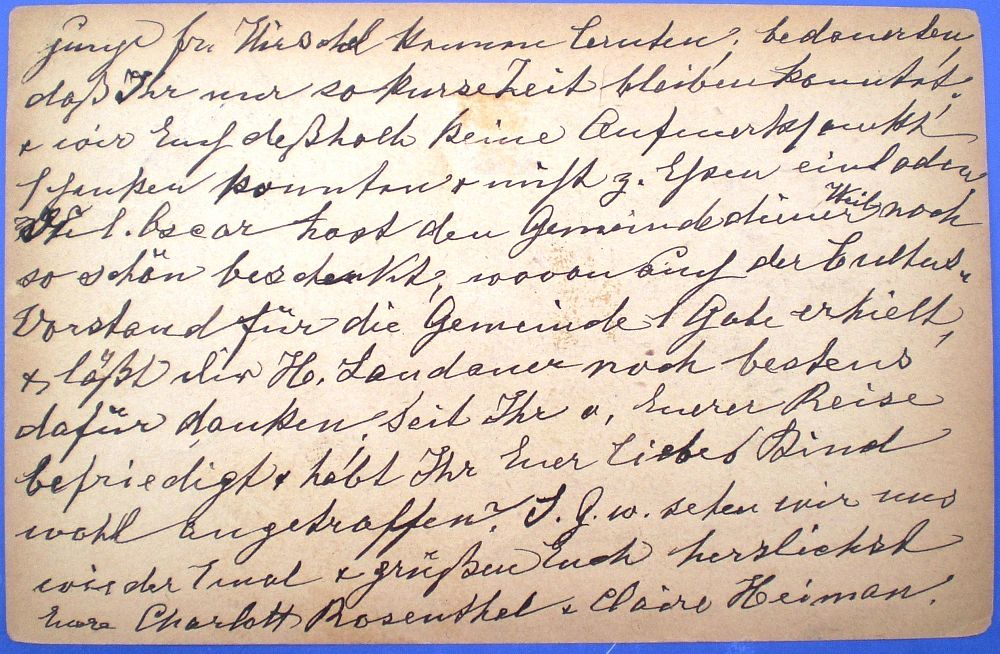 junge fr. Hirschl kennen lernten, bedauerten
daß Ihr nur so kurze Zeit bleiben konntet.
& wir Euch deßhalb keine Aufmerksamkt
schenken konnten & nicht z. Essen einladen
l. Oscar hast den Gemeindediener Weil noch
so schön beschenkt, wovon auch der Cultus-
Vorstand für die Gemeinde 1 Gabe erhielt,
& läßt dir H. Landauer noch bestens
dafür danken. Seit Ihr v. Eurer Reise
befriedigt & habt Ihr Euer liebes Kind
wohl angetroffen? S. G. w. sehen wir uns
wieder 1 mal & grüßen Euch herzlichst
Eure Charlott Rosenthal & Claire Heiman.